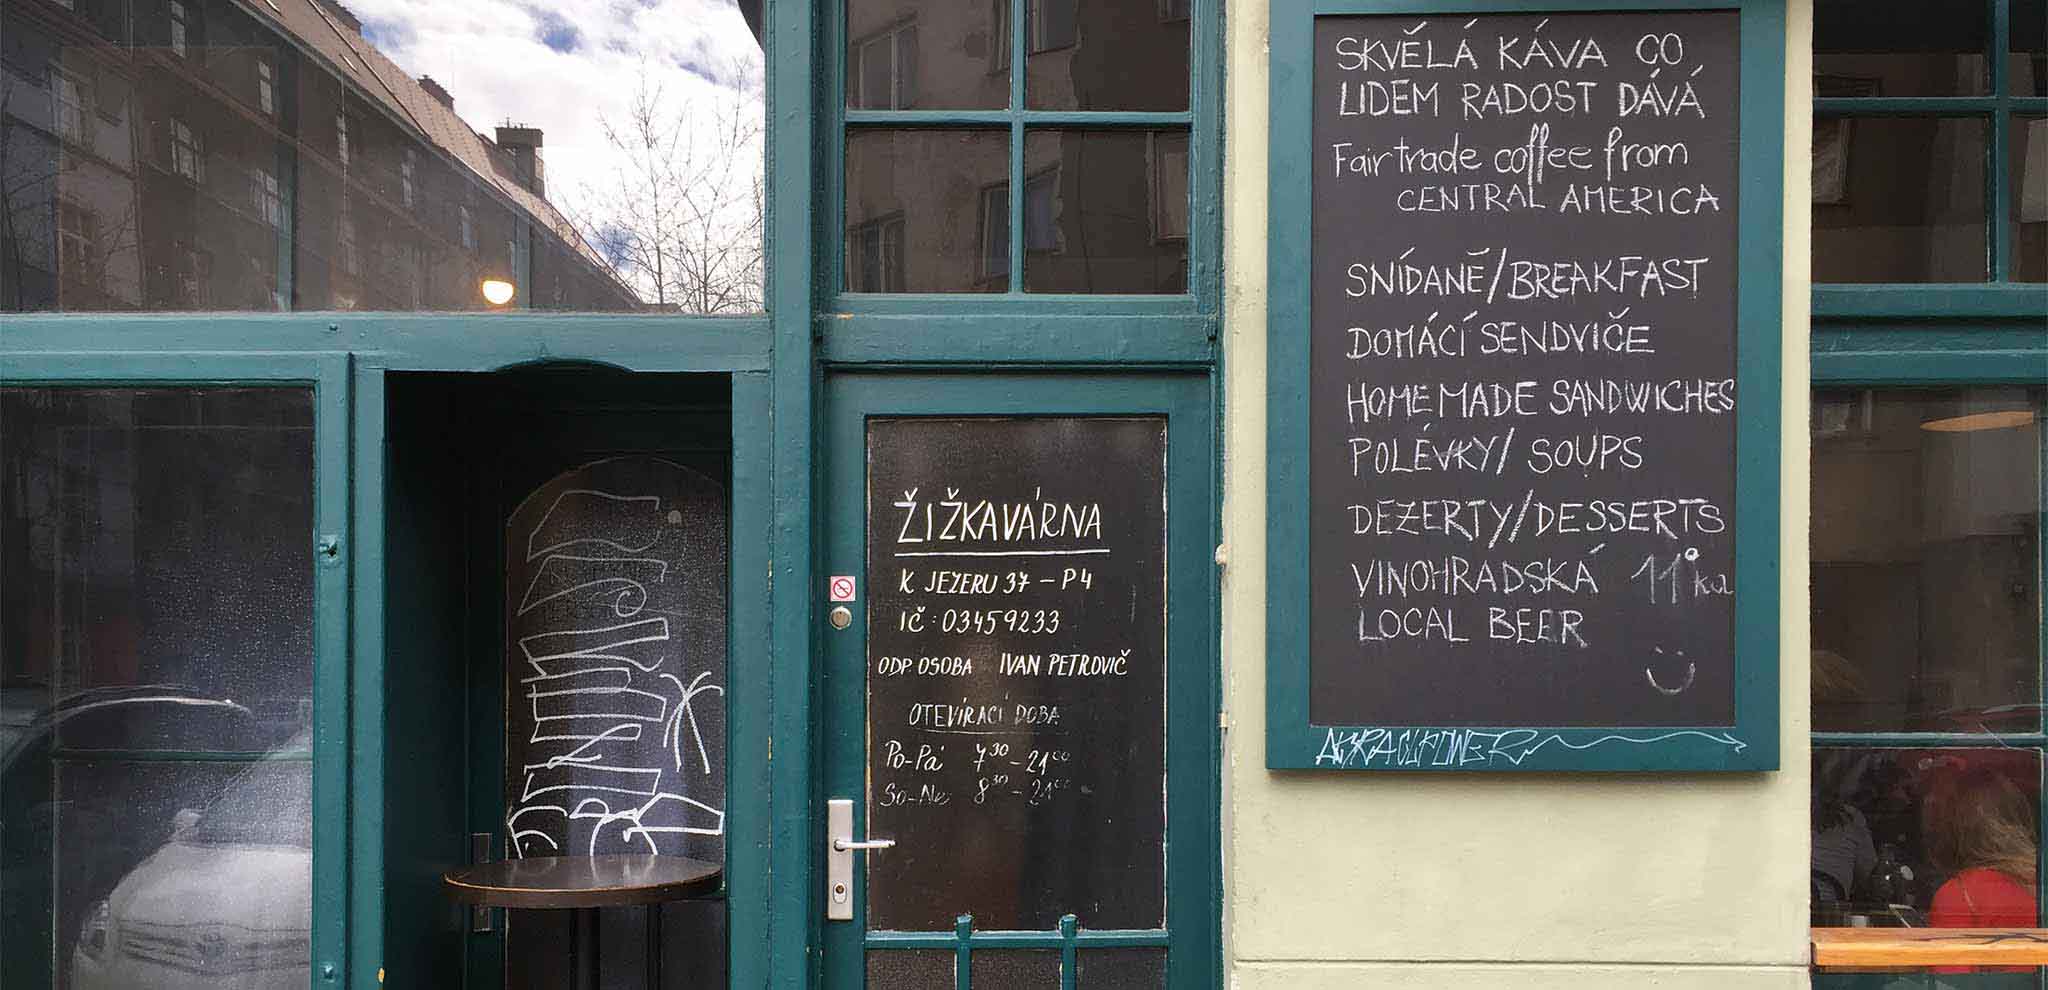 ŽIŽKAVÁRNA
K JEZERU 37 - P4
IČ: 03459233
ODP. OSOBA IVAN PETROVIČ
OTEVÍRACÍ DOBA
Po-Pá 7³⁰ - 21⁰⁰
So-Ne 8³⁰ - 21⁰⁰
SKVĚLÁ KÁVA CO
LIDEM RADOST DÁVÁ
Fair trade coffee from
CENTRAL AMERICA
SNÍDANĚ/BREAKFAST
DOMÁCÍ SENDVIČE
HOMEMADE SANDWICHES
POLÉVKY/SOUPS
DEZERTY/DESSERTS
VINOHRADSKÁ 11°ka
LOCAL BEER